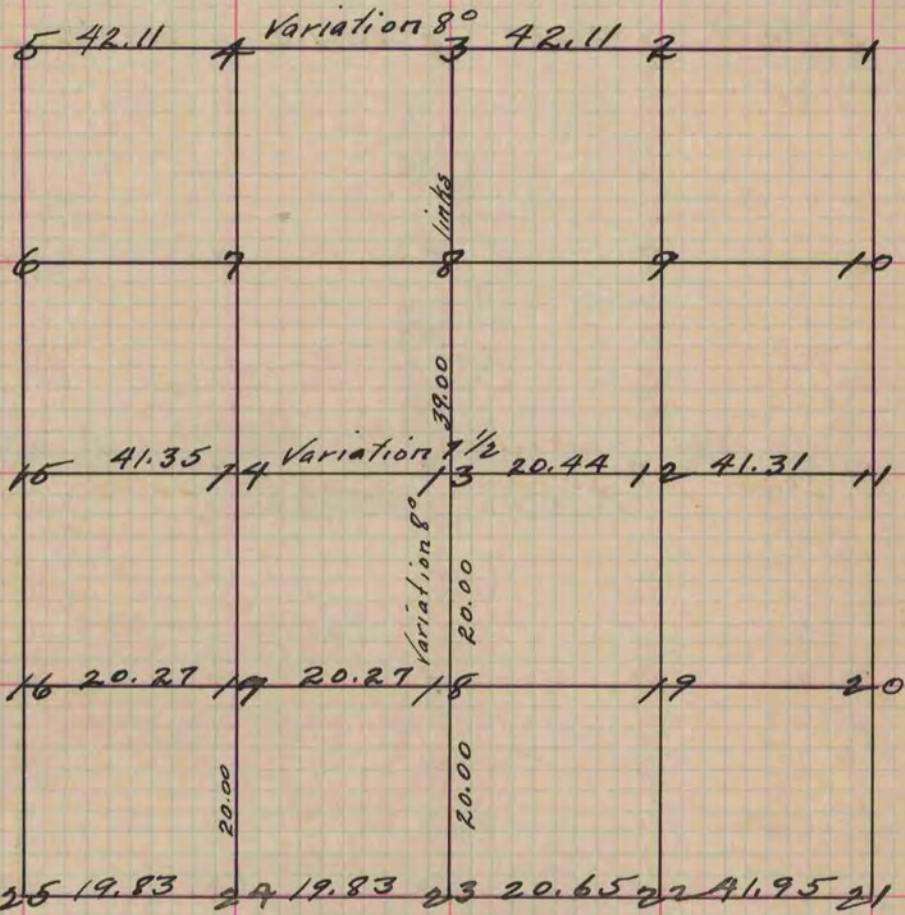 5 42.11 4 Variation 8° 3 42.11 2 1
links
6 7 8 9 10
39.00
15 41.35 14 Variation 7 1/2 13 20.44 12 41.31 11
Variation 8°
20.00
16 20.27 17 20.27 18 19 20
20.00
20.00
25 19.83 24 19.83 23 20.65 22 41.95 21